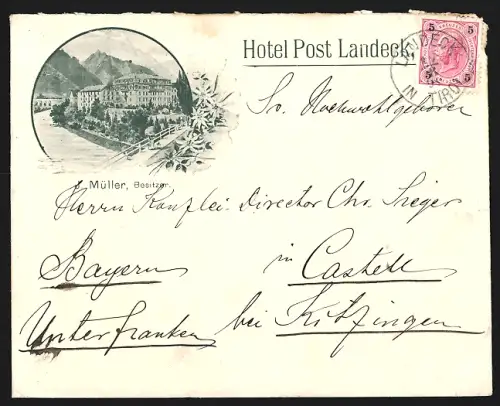 Hotel Post Landeck
5 5
5 5
LANDECK
IN TIROL
Sr. Hochwohlgeboren
J. Müller, Besitzer.
Herrn Kanzlei-Director Chr. Sieger
in
Bayern Castell
Unterfranken bei Kitzingen